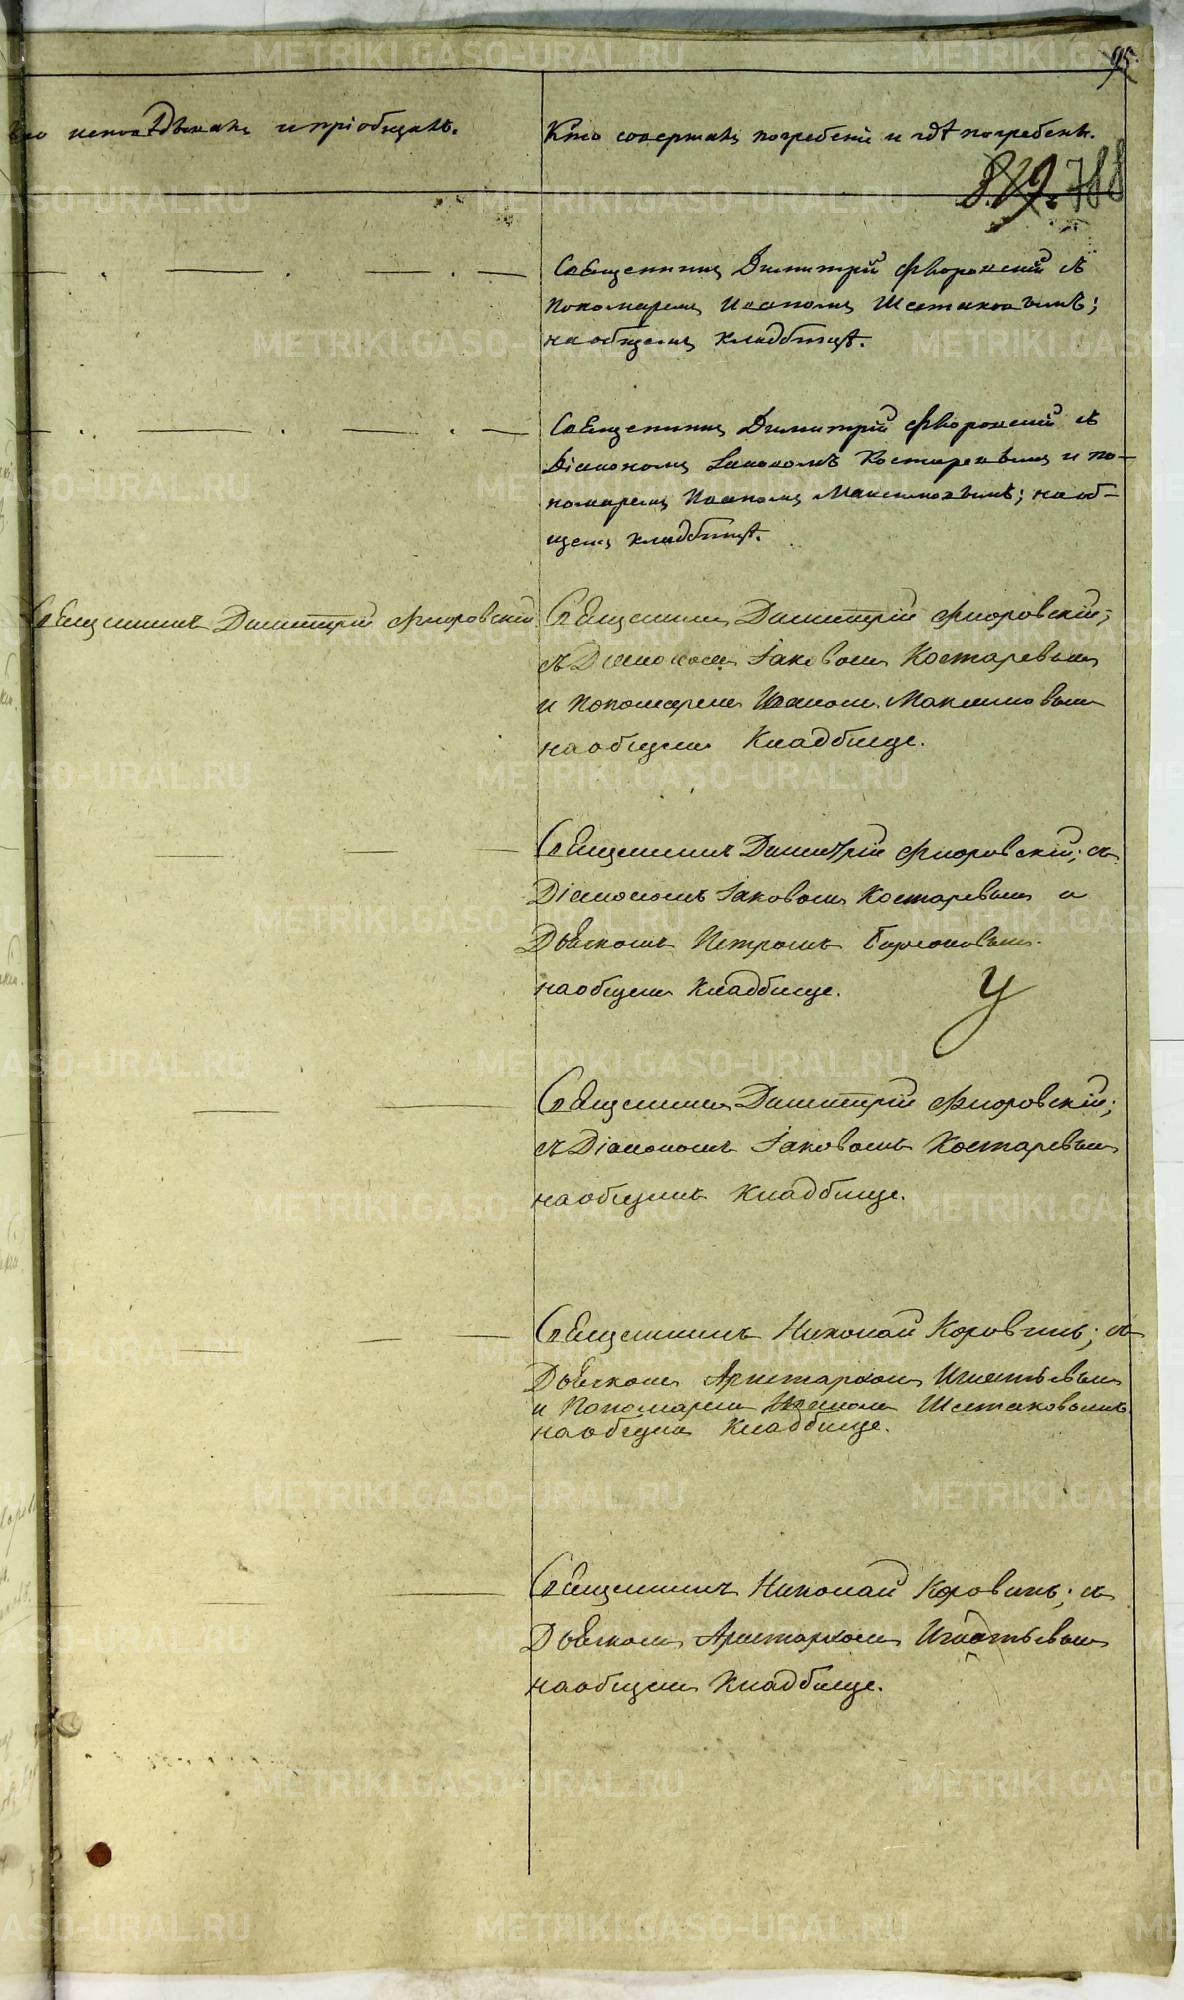 95.
Кто исповѣдывалъ и пріобщалъ.
Кто совершалъ погребеніе и гдѣ погребенъ.
829. 788
Священникъ Димитрій Флоровскій съ
Пономаремъ Иваномъ Шестаковымъ;
на общемъ кладбищѣ.
Священникъ Димитрій Флоровскій съ
Діакономъ Іаковомъ Костаревымъ и по-
номаремъ Иваномъ Максимовымъ; на об-
щемъ кладбищѣ.
Священникъ Димитрій Флоровскій
Священникъ Димитрій Флоровскій;
съ Діакономъ Іаковомъ Костаревымъ
и Пономаремъ Иваномъ Максимовымъ
на общемъ Кладбище.
Священникъ Димитрій Флоровскій; съ
Діакономъ Іаковомъ Костаревымъ и
Дьячкомъ Петромъ
на общемъ Кладбище.
У
Священникъ Димитрій Флоровскій;
съ Діакономъ Іаковомъ Костаревымъ
на общемъ Кладбище.
Священникъ Николай Коровинъ; съ
Дьячкомъ Аристархомъ Игнатьевымъ
и Пономаремъ Иваномъ Шестаковымъ
на общемъ Кладбище.
Священникъ Николай Коровинъ; съ
Дьячкомъ Аристархомъ Игнатьевымъ
на общемъ Кладбище.
METRIKI.GASO-URAL.RU